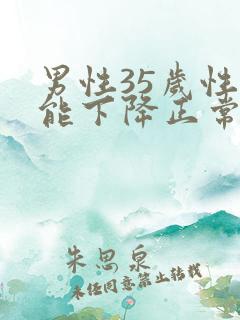 男性35歲性
能下降正常
朱思泉
未经同意禁止转载